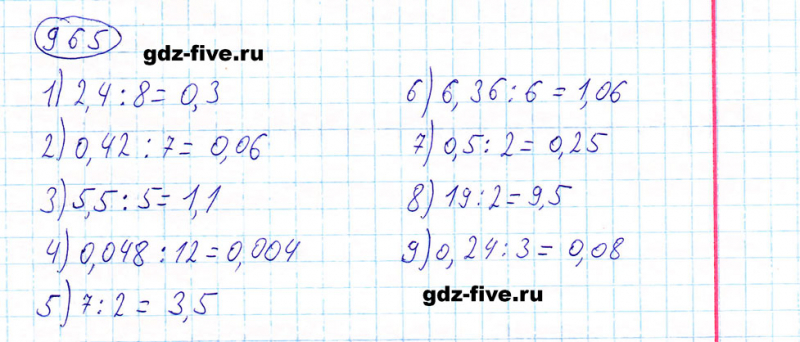 965
gdz-five.ru
1) 2,4 : 8 = 0,3
2) 0,42 : 7 = 0,06
3) 5,5 : 5 = 1,1
4) 0,048 : 12 = 0,004
5) 7 : 2 = 3,5
6) 6,36 : 6 = 1,06
7) 0,5 : 2 = 0,25
8) 19 : 2 = 9,5
9) 0,24 : 3 = 0,08
gdz-five.ru